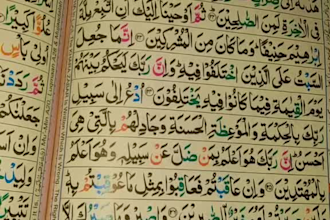 فِي الْاٰخِرَةِ لَمِنَ الصّٰلِحِيْنَ ﴿۱۲۲﴾ ثُمَّ اَوْحَيْنَآ اِلَيْكَ اَنِ اتَّبِعْ مِلَّةَ
اِبْرٰهِيْمَ حَنِيْفًا وَمَا كَانَ مِنَ الْمُشْرِكِيْنَ ﴿۱۲۳﴾ اِنَّمَا جُعِلَ
السَّبْتُ عَلَى الَّذِيْنَ اخْتَلَفُوْا فِيْهِ وَاِنَّ رَبَّكَ لَيَحْكُمُ بَيْنَهُمْ
يَوْمَ الْقِيٰمَةِ فِيْمَا كَانُوْا فِيْهِ يَخْتَلِفُوْنَ ﴿۱۲۴﴾ اُدْعُ اِلٰى سَبِيْلِ
رَبِّكَ بِالْحِكْمَةِ وَالْمَوْعِظَةِ الْحَسَنَةِ وَجَادِلْهُمْ بِالَّتِيْ هِيَ
اَحْسَنُ اِنَّ رَبَّكَ هُوَ اَعْلَمُ بِمَنْ ضَلَّ عَنْ سَبِيْلِهٖ وَهُوَ اَعْلَمُ
بِالْمُهْتَدِيْنَ ﴿۱۲۵﴾ وَاِنْ عَاقَبْتُمْ فَعَاقِبُوْا بِمِثْلِ مَا عُوْقِبْتُمْ بِهٖ
عُلُوًّا كَبِيْرًا
ثُمَّ
جَعَلْنٰكُمْ